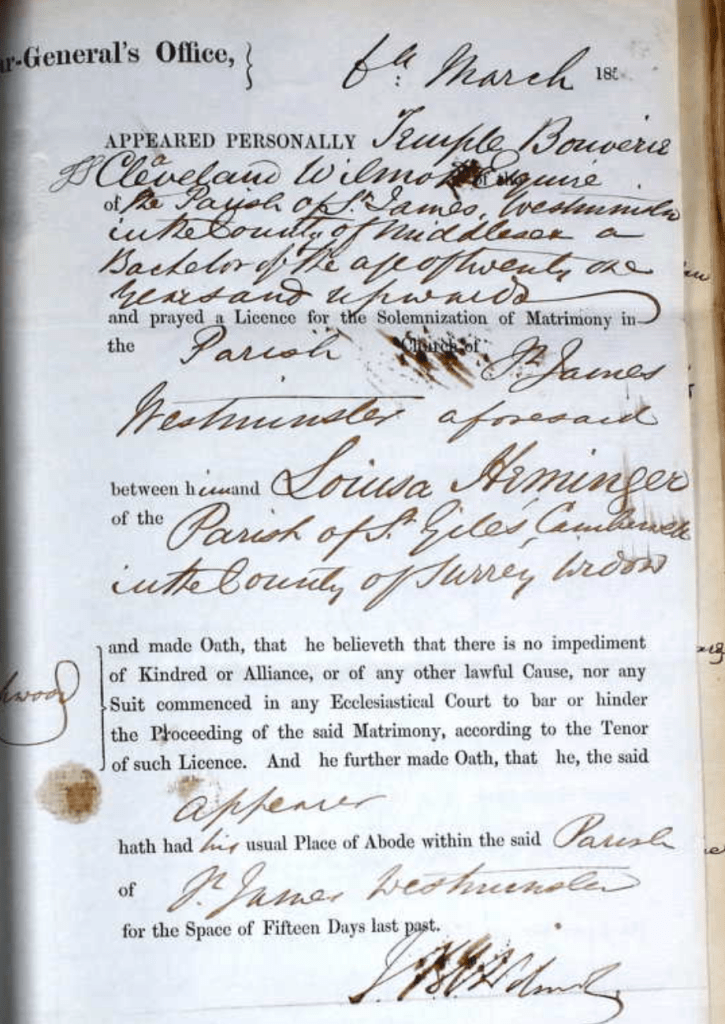 ar-General's Office, }
6th March 185
APPEARED PERSONALLY Temple Bouverie
Cleveland Wilmot Esquire
of the Parish of St James, Westminster
in the County of Middlesex a
Bachelor of the age of twenty one
years and upwards
and prayed a Licence for the Solemnization of Matrimony in
the Parish Church of St James
Westminster aforesaid
between him and Louisa Heminger
of the Parish of St Giles, Camberwell
in the County of Surrey, Widow
and made Oath, that he believeth that there is no impediment
of Kindred or Alliance, or of any other lawful Cause, nor any
Suit commenced in any Ecclesiastical Court to bar or hinder
the Proceeding of the said Matrimony, according to the Tenor
of such Licence. And he further made Oath, that he, the said
appearer
hath had his usual Place of Abode within the said Parish
of St James Westminster
for the Space of Fifteen Days last past.